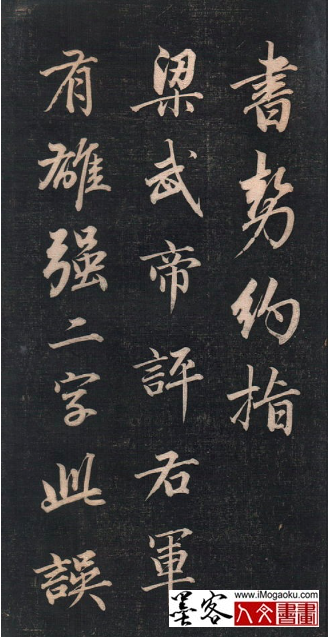 書勢約指
梁武帝評右軍
有雄强二字此誤
www.iMogaoku.com
墨客
人文書畫